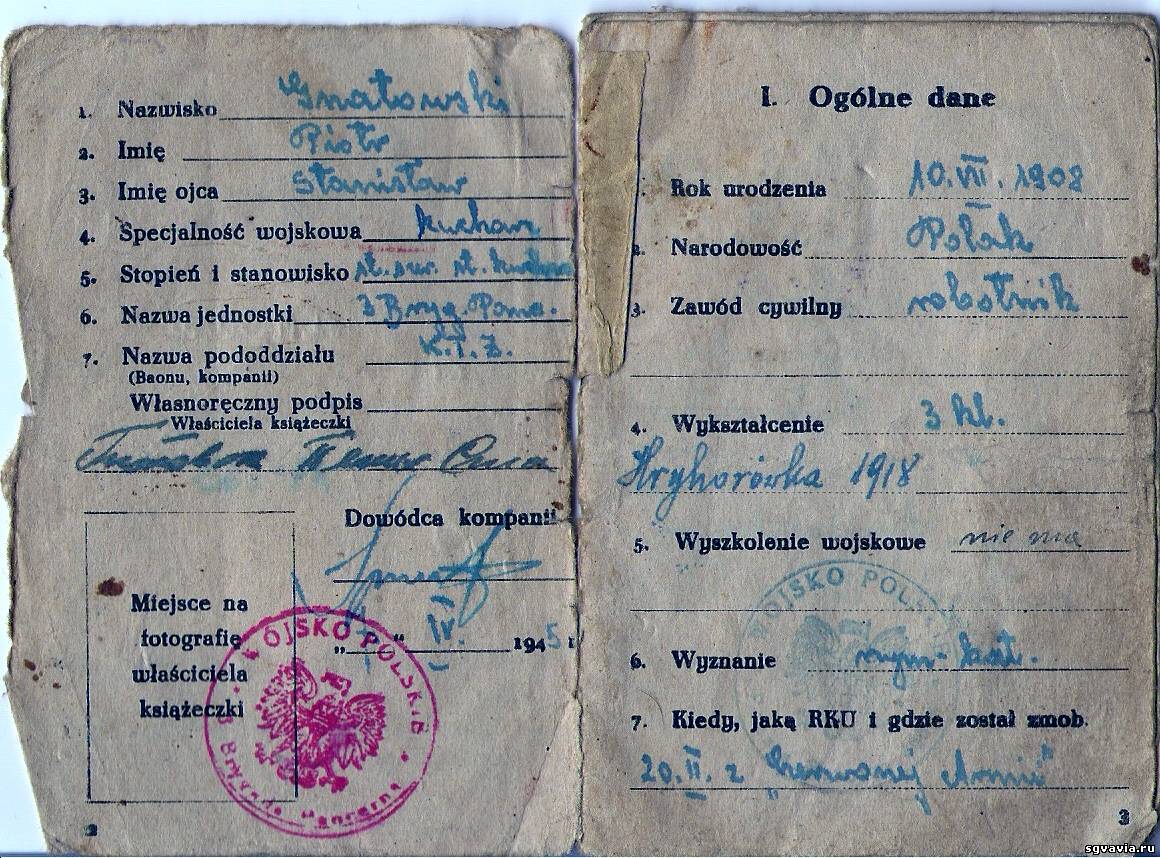 1. Nazwisko Gnatowski
2. Imię Piotr
3. Imię ojca Stanisław
4. Specjalność wojskowa kucharz
5. Stopień i stanowisko st. st.
6. Nazwa jednostki 3 Bryg.
7. Nazwa pododdziału K.T.Z.
(Baonu, kompanii)
Własnoręczny podpis
Właściciela książeczki
Dowódca kompanii
Miejsce na
fotografię
właściciela
książeczki
„ “ IV. 1945 r
WOJSKO POLSKIE
3 Brygada Pancerna
2
I. Ogólne dane
Rok urodzenia 10.VII.1908
2. Narodowość Polak
3. Zawód cywilny robotnik
4. Wykształcenie 3 kl.
Hryhorówka 1918
5. Wyszkolenie wojskowe nie ma
WOJSKO POLSKIE
6. Wyznanie rzym-kat.
7. Kiedy, jaką RKU i gdzie został zmob.
20.II. z „Czerwonej Armii"
3
sgvavia.ru